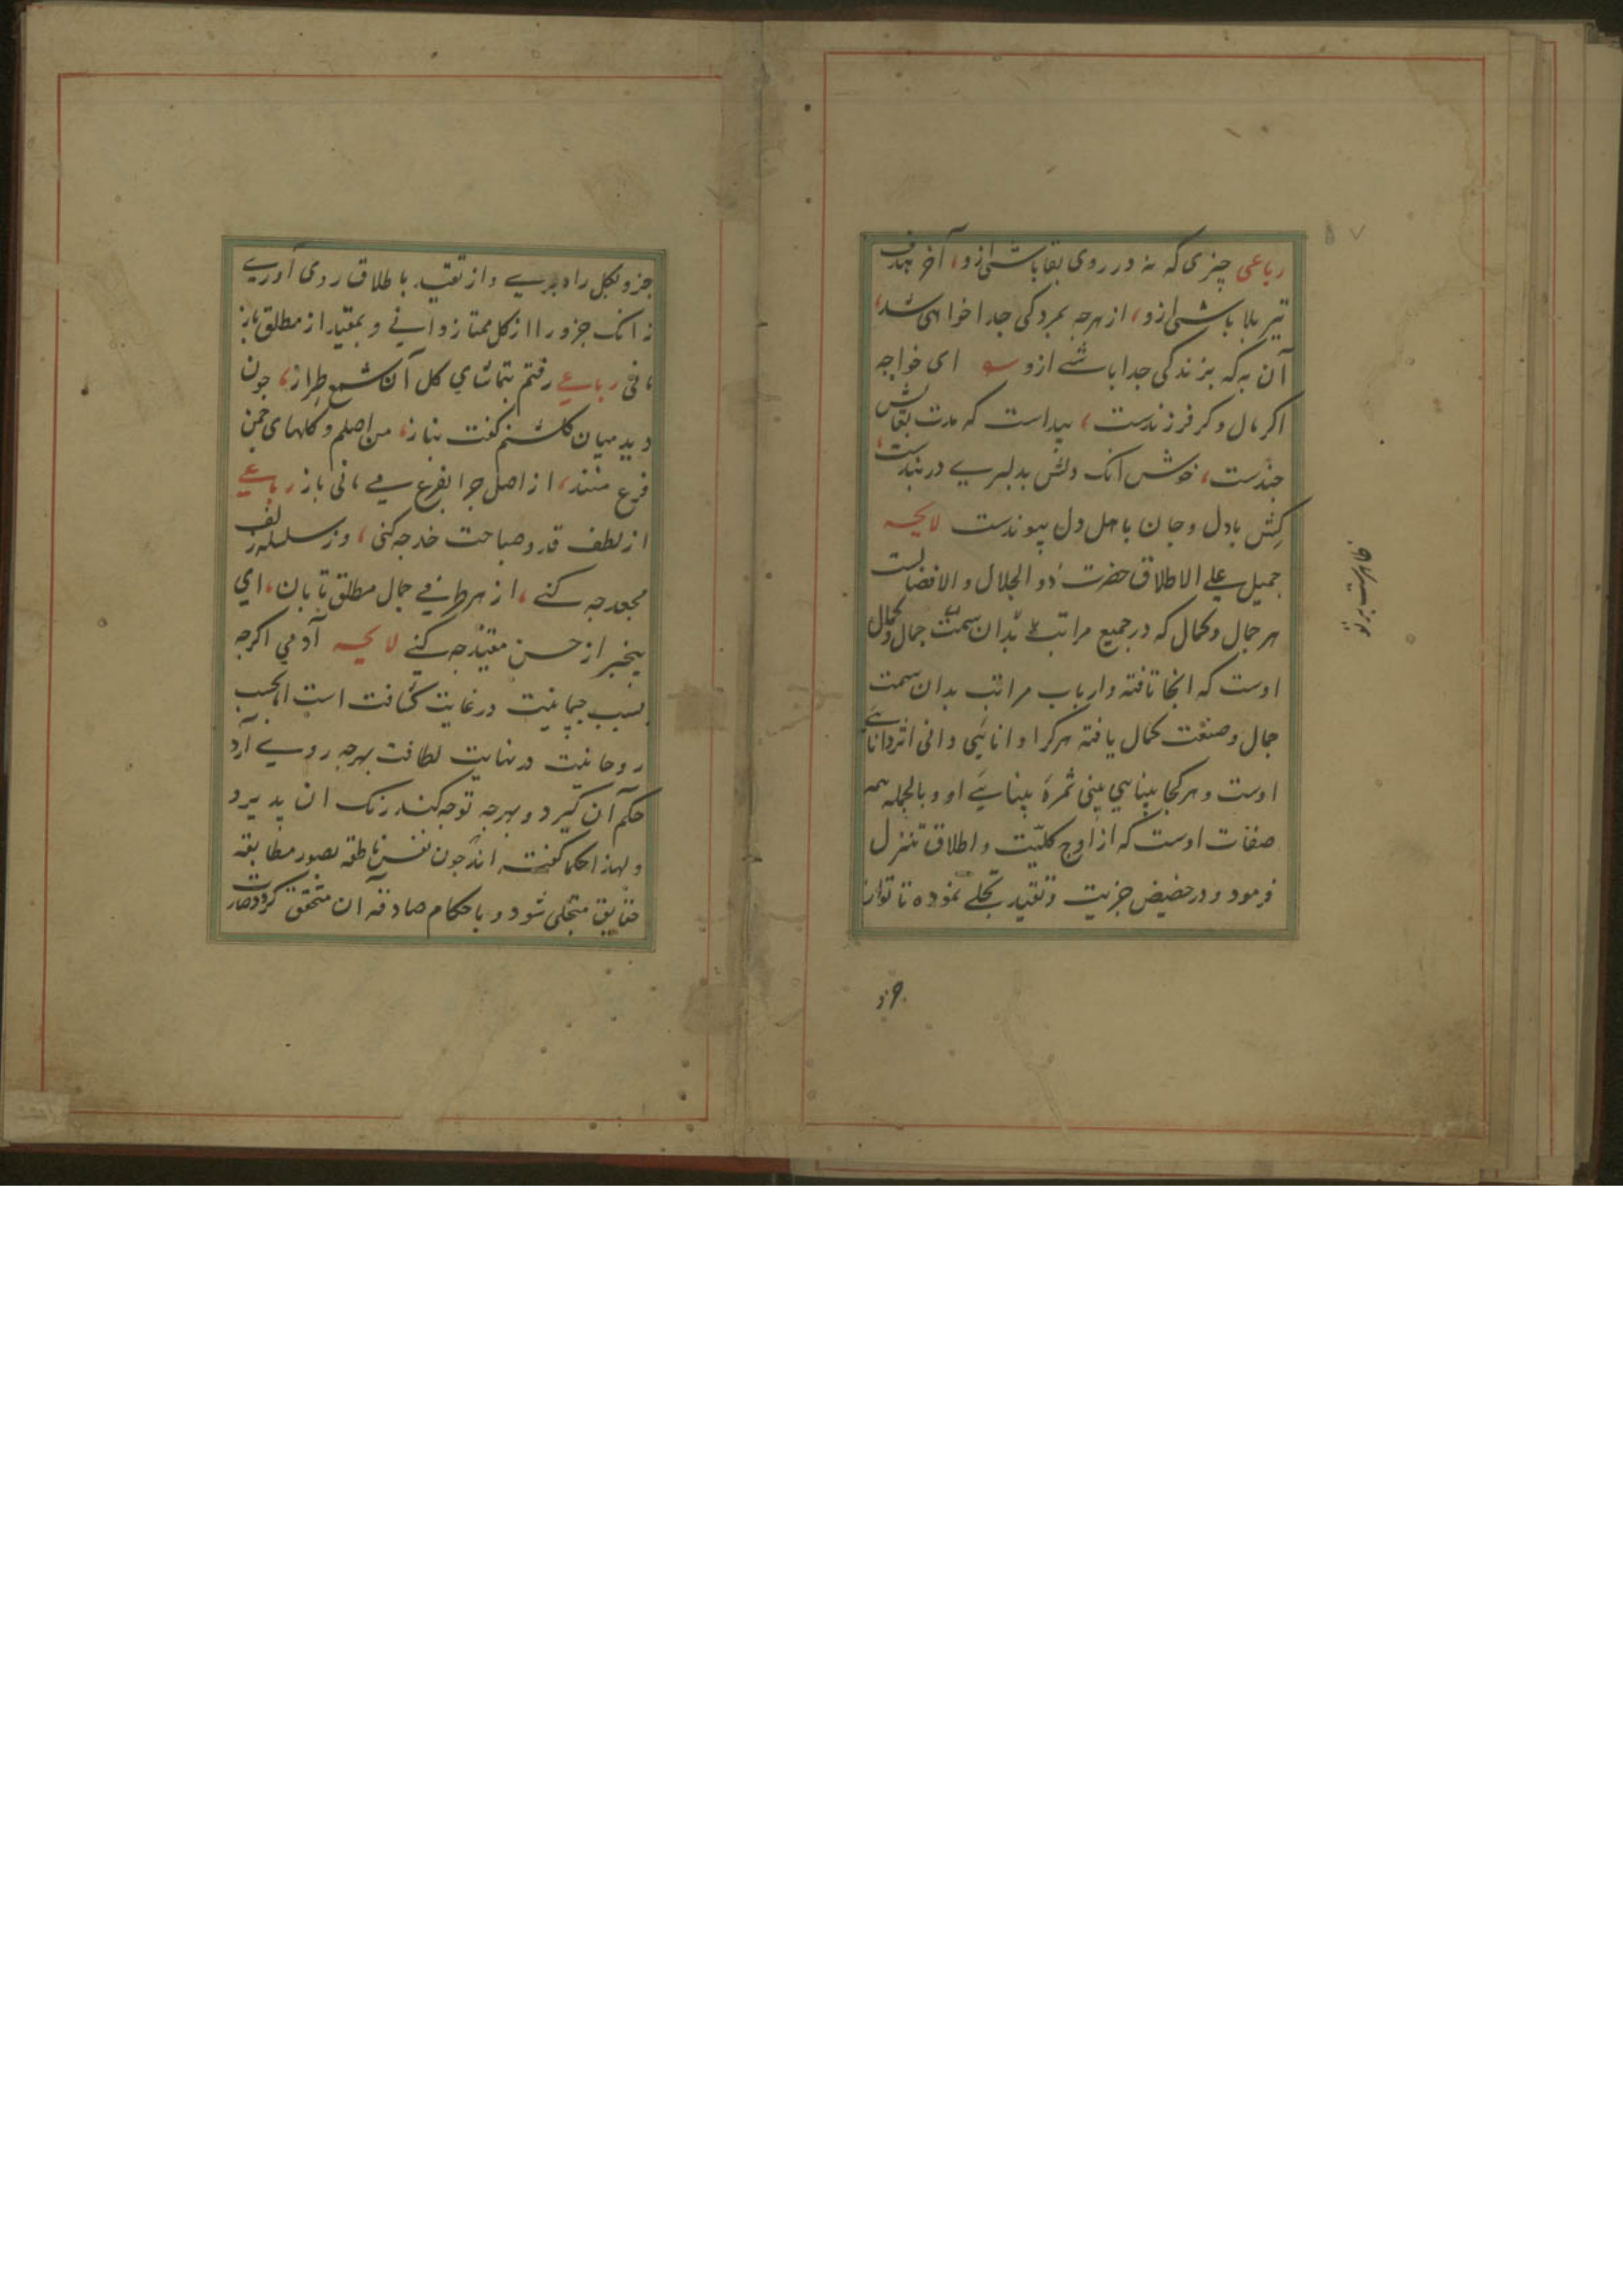 رباعی چیزی که نه در روی بقا باشی ازو، آخر هدف
تیر بلا باشی ازو، از هرچه بمردکی جدا خواهی شد،
آن به که بزندکی جدا باشے ازو ای خواجه
اکر مال و کر فرزندست، پیداست که مدت بقاش
چندست، خوش آنک دلش بدلبرے در بندست،
کِش بادل و جان باهل دل پیوندست لایحه
جمیل علے الاطلاق حضرت ذو الجلال و الافضالست
هر جمال و کمال که در جمیع مراتب بدان سمت جمال و کمال
اوست که آنجا تافته و ارباب مراتب بدان سمت
جمال و صنعت کمال یافته هرکرا دانایی دانی اثر دانایے
اوست و هر کجا بینایی بینی ثمرهٔ بینایے او و بالجمله همه
صفات اوست که از اوج کلیّت و اطلاق تنزل
فرمود و در حضیض جزیت و تقید تجلے نموده تا تو از
جزو
جزو بکل راه برے و از تقید باطلاق روی آورے
نه آنک جزو را از کل ممتاز دانے و بمقید از مطلق باز
مانی رباعے رفتم بتماشاي کل آن شمع طِراز، چون
دید میان کلشنم کفت بناز، من اصلم و کلهای چمن
فرع منند، از اصل چرا بفرع مے مانی باز رباعے
از لطف قد و صباحت خد چه کنی، وز سلسله زلف
مجعد چه کنے، از هر طرفے جمال مطلق تابان، اي
بیخبر از حسن مقید چه کنے لایحه آدمي اکرچه
بسبب جسمانیت در غایت کثافت است اما بحسب
روحانیت در نهایت لطافت بهرچه روے آرد
حکم آن کیرد و بهرچه توجه کند رنک آن پذیرد
و لهذا حکما کفته اند چون نفس ناطقه بصور مطابقه
حقایق متجلی شود و باحکام صادقه آن متحقق کردد صارت